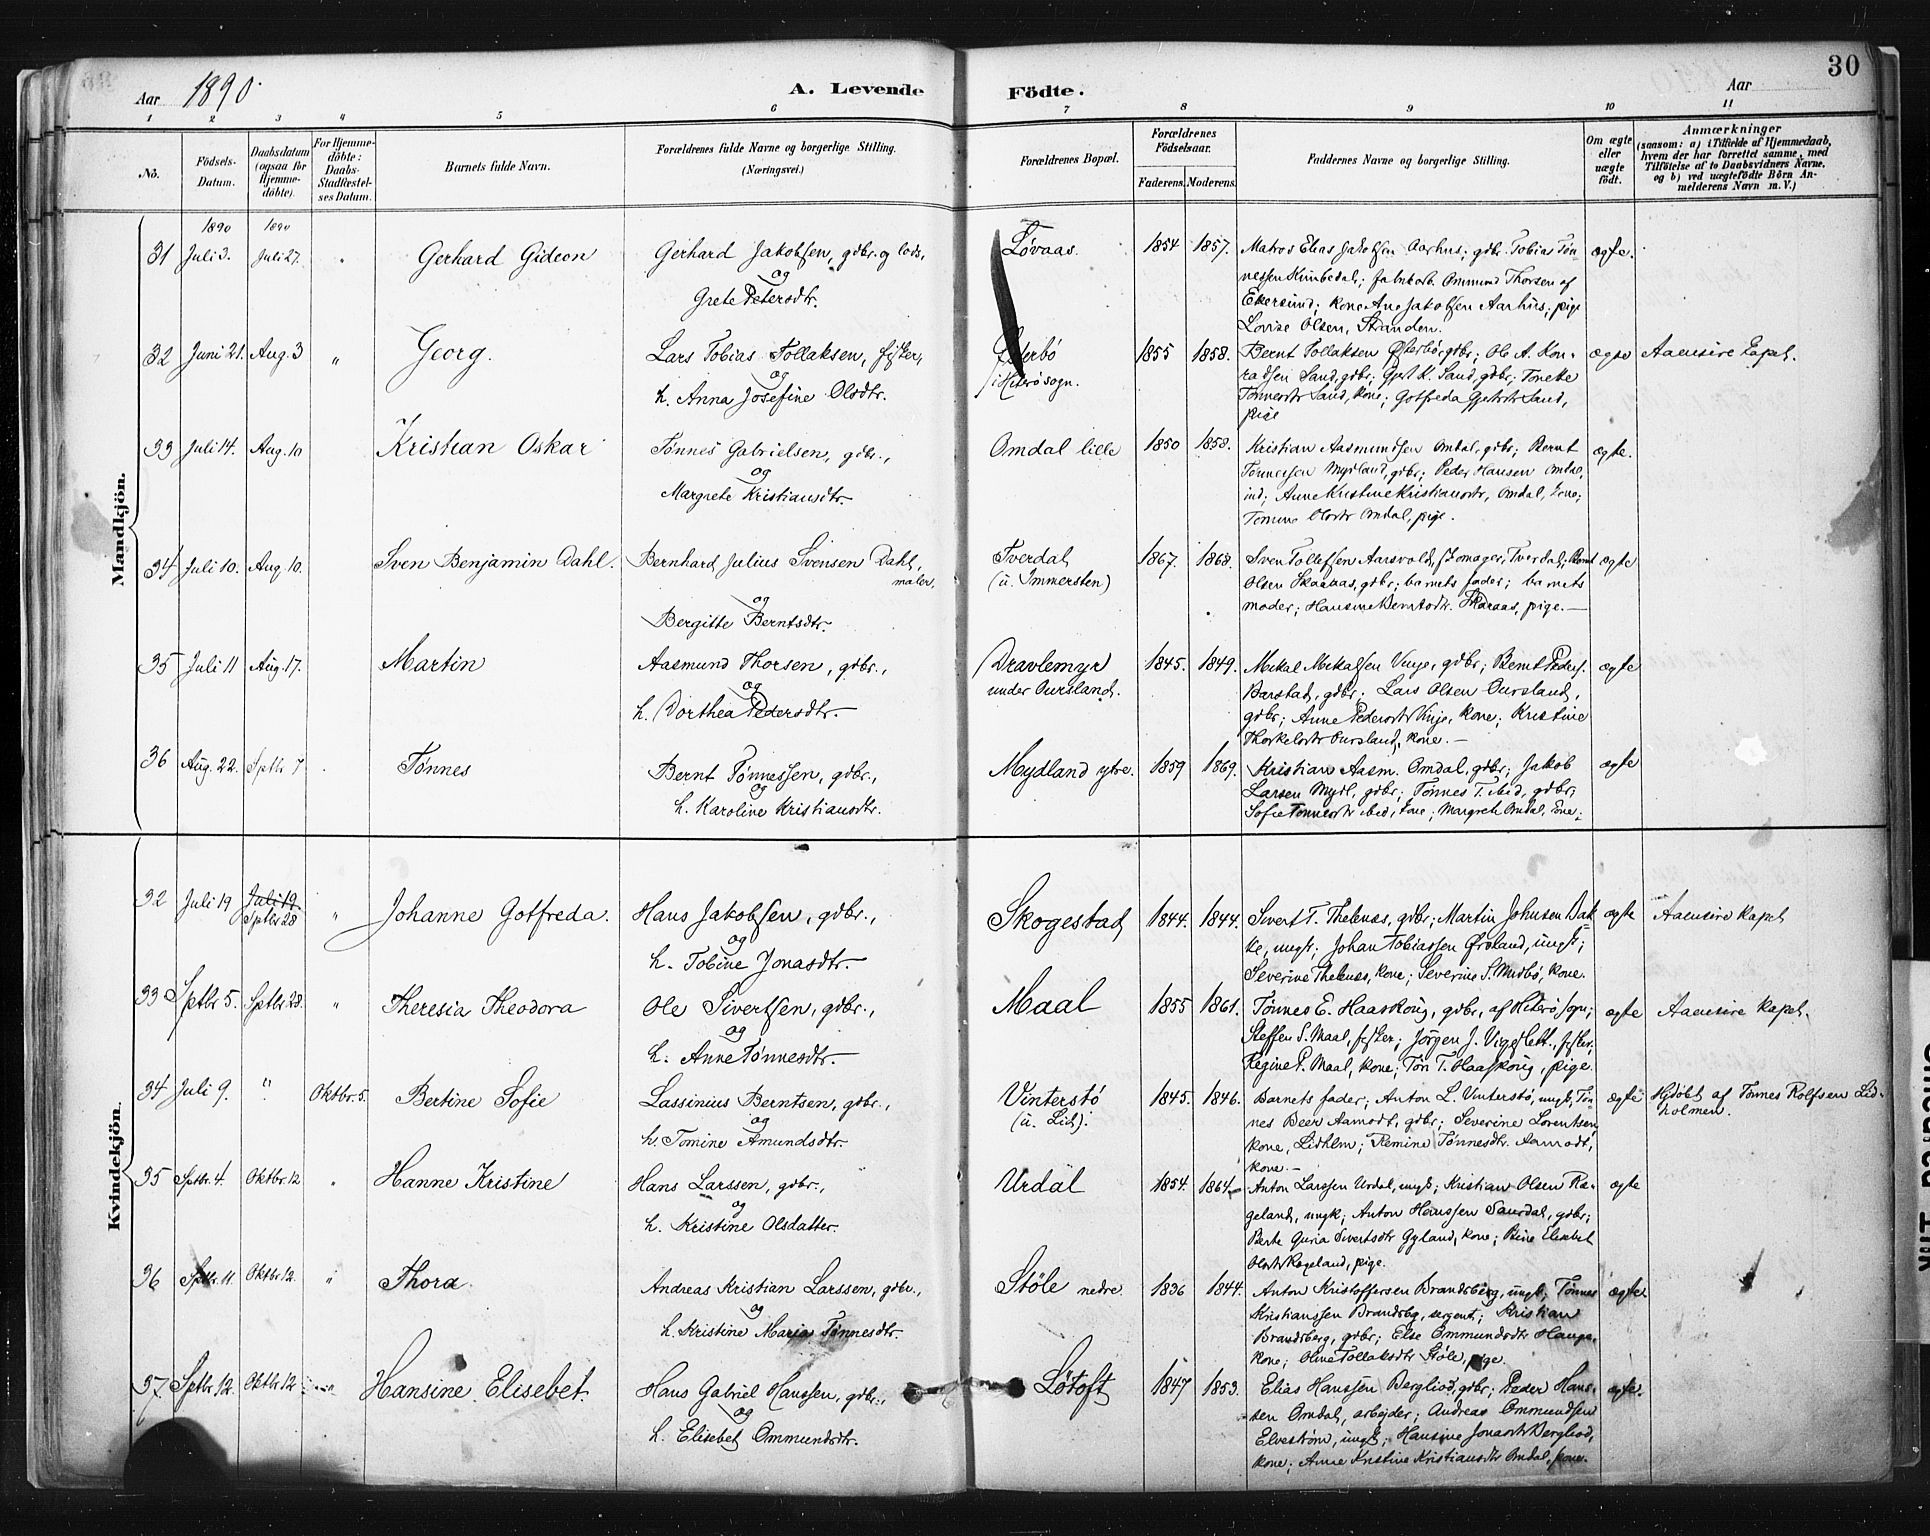 Aar 1890. A. Levende Fødte. Aar 30
1 2 3 4 5 6 7 8 9 10 11
No. Fødsels-Datum. Daabsdatum (ogsaa for Hjemmedøbte). For Hjemmedøbte: Daabs-Stadfæstelses Datum. Barnets fulde Navn. Forældrenes fulde Navne og borgerlige Stilling. (Næringsvei.) Forældrenes Bopæl. Forældrenes Fødselsaar. Faderens. Moderens. Faddernes Navne og borgerlige Stilling. Om ægte eller uægte født. Anmærkninger (saasom: a) i Tilfælde af Hjemmedaab, hvem der har forrettet samme, med Tilføielse af to Daabsvidners Navne, og b) ved uægtefødte Børn Anmelderens Navn m. V.)
Mandkjøn.
1890 1890
31 Juli 3. Juli 27. " Gerhard Gideon Gerhard Jakobsen, gdbr. og lods, Løvaas. 1854 1857. Matros Elias Jakobsen Aarhus; gdbr. Tobias Tøn- ægte.
og nessen Kumbedal; fabrikarb. Ommund Thorsen af
Grete Petersdtr. Ekersund; kone Ane Jakobsen Aarhus; pige
Lovise Olsen, Stranden.
32 Juni 21. Aug. 3 " Georg. Lars Tobias Tollaksen, fisker, Østerbø 1855 1858. Bernt Tollaksen Østerbø, gdbr; Ole A. Kon- ægte Aaensire Kapel.
og i Hiterø sogn. radsen Sand, gdbr; Gjert K. Sand, gdbr; Tonette
h. Anna Josefine Olsdtr. Tønnesdtr Sand, kone; Gotfreda Gjertsdtr Sand,
pige
33 Juli 14. Aug. 10 Kristian Oskar Tønnes Gabrielsen, gdbr., Omdal lille 1850 1858. Kristian Aasmundsen Omdal, gdbr; Bernt ægte.
og Tønnessen Mydland, gdbr; Peder Hansen Omdal,
Margrete Kristiansdtr. ind; Anne Kristine Kristiansdtr, Omdal, kone;
Tomine Olsdtr Omdal, pige.
34 Juli 10. Aug. 10. Sven Benjamin Dahl. Bernhard Julius Svensen Dahl, maler, Tverdal 1867. 1868. Sven Tollefsen Aarsvold, skomager, Tverdal; Bernt ægte
(u. Immersten) Olsen Skaraas, gdbr; barnets fader; barnets
og moder; Hansine Berntsdtr. Skaraas, pige.—
Bergitte Berntsdtr.
35 Juli 11 Aug. 17. Martin Aasmund Thorsen, gdbr., Dravlemyr 1845. 1849. Mikal Mikalsen Vinje, gdbr; Bernt Peders. ægte
og under Oursland. Barstad, gdbr; Lars Olsen Oursland,
h. Dorthea Pedersdtr.— gdbr; Anne Pedersdtr Vinje, kone; Kristine
Thorkelsdtr Oursland, kone.—
36 Aug. 22. Sptbr 7 Tønnes Bernt Tønnessen, gdbr., Mydland ytre. 1859 1869. Kristian Aasm. Omdal, gdbr; Jakob ægte
og Larsen Mydl, gdbr; Tønnes T. ibid, gdbr;
h. Karoline Kristiansdtr. Sofie Tønnesdtr ibid, kone; Margrete Omdal, kone;
Kvindekjøn.
32 Juli 19 Juli 19. Sptbr 28 " Johanne Gotfreda. Hans Jakobsen, gdbr., Skogestad 1844. 1844. Sivert T. Thelenæs, gdbr; Martin Johnsen Bak- ægte Aaensire Kapel
og ke, ungk; Johan Tobiassen Ørsland, ungk;
h. Tobine Jonasdtr.— Severine Thelenæs, kone; Severine S. Midbø, kone.
33 Sptbr 5. Sptbr 28. " Theresia Theodora Ole Sivertsen, gdbr., Maal 1855 1861. Tønnes E. Haaskong, gdbr, af Hiterø sogn; ægte Aaensire Kapel.
og Steffen S. Maal, fisker; Jørgen J. Vigeslett, fisker,
h. Anne Tønnesdtr.— Regine P. Maal, kone; Tøn T. Haaskong, pige.
34 Juli 9. " Oktbr. 5. Bertine Sofie Lassinius Berntsen, gdbr., Vinterstø 1845. 1846. Barnets fader; Anton L. Vinterstø, ungk; Tøn- ægte Hjdøbt af Tønnes Rolfsen Lid-
og (u. Lid). nes Beer Aamodt, gdbr; Severine Lorentsen, holmen.
h. Tomine Amundsdtr. kone, Lidhlm; Remine Tønnesdtr. Aamodt,
kone.—
35 Sptbr. 4. Oktbr. 12 " Hanne Kristine Hans Larssen, gdbr., Urdal 1854. 1864 Anton Larssen Urdal, ungk; Kristian Olsen Ra- ægte
og geland, ungk; Anton Hanssen Saurdal, gdbr;
h. Kristine Olsdatter. Berte Guria Sivertsdtr Gyland, kone; Bine Elisebet
Olsdtr Rageland, pige.
36 Sptbr. 11. Oktbr. 12. " Thora Andreas Kristian Larssen, gdbr., Støle nedre 1836 1844. Anton Kristoffersen Brandsberg, ungk; Tønnes ægte
og Kristianssen Brandsbg, sergent; Kristian
h. Kristine Maria Tønnesdtr. Brandsberg, gdbr; Else Ommundsdtr Hauga-
kone; Oline Tollaksdtr Støle, pige.
37. Sptbr. 12. Oktbr 12 Hansine Elisebet. Hans Gabriel Hanssen, gdbr., Løtoft 1847 1853. Elias Hanssen Bergliod, gdbr; Peder Hans- ægte.
og sen Omdal, arbejder; Andreas Ommundsen
h. Elisebet Ommundsdtr. Elvestrøm, ungk; Hansine Jonasdtr Bergliod,
kone; Anne Kristine Kristiansdtr Omdal, kone.